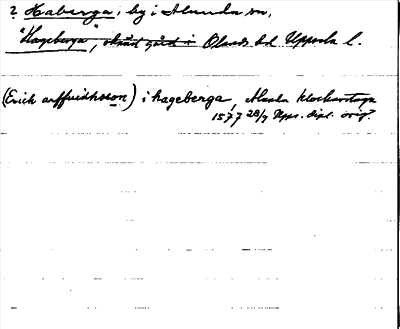 ? Haberga, by i Alunda sn,
"Hageberga", okänd gård i Olands hd Uppsala l.
(Erich arffuidhsson) i hageberga, Alunda klockarstuga
1577 28/7 Upps. dipl. orig.